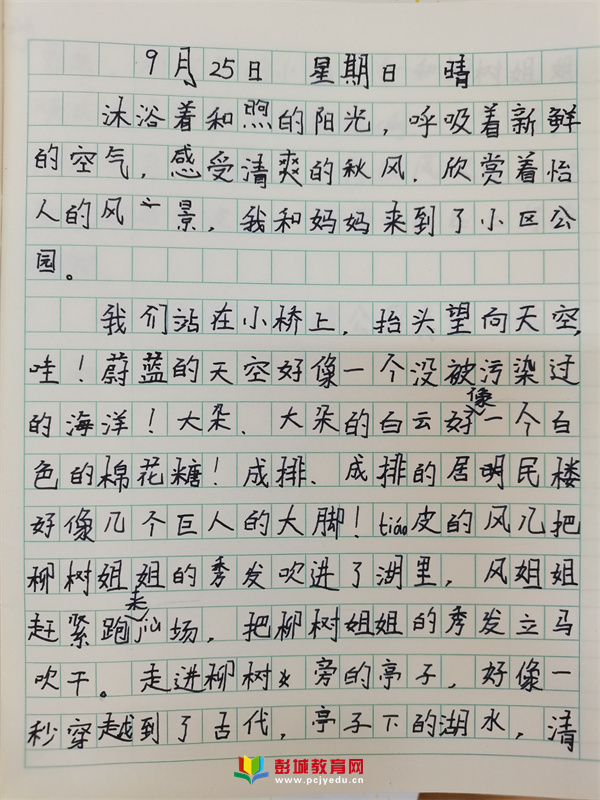 9月25日 星期日 晴
沐浴着和煦的阳光，呼吸着新鲜
的空气，感受清爽的秋风，欣赏着怡
人的风景，我和妈妈来到了小区公
园。
我们站在小桥上，抬头望向天空，
哇！蔚蓝的天空好像一个没被污染过
的海洋！大朵、大朵的白云好像一个白
色的棉花糖！成排、成排的居民楼
好像几个巨人的大脚！tiáo皮的风儿把
柳树姐姐的秀发吹进了湖里，风姐姐
赶紧跑来jiù场，把柳树姐姐的秀发立马
吹干。走进柳树旁的亭子，好像一
秒穿越到了古代，亭子下的湖水，清
彭城教育网
www.pcjyedu.cn